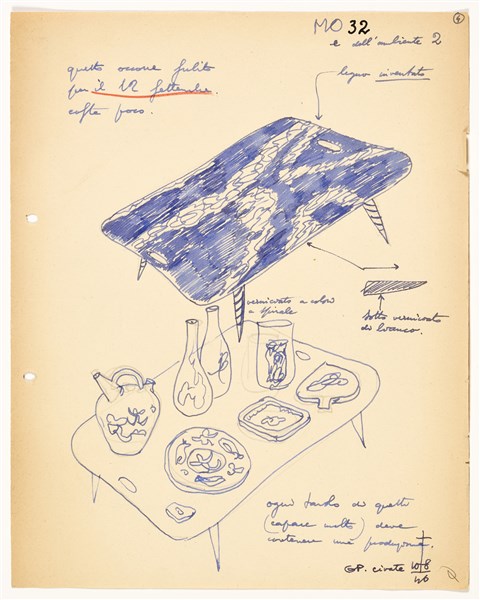 4
MO 32
e dell'ambiente 2
questo occorre subito
per il 12 settembre.
costa poco.
legno inventato
verniciato a colori
a spirale
sotto verniciato
di bianco.
ogni tavolo di questi
(capace molto) deve
contenere una produzione.
GP. civate 10 8
46